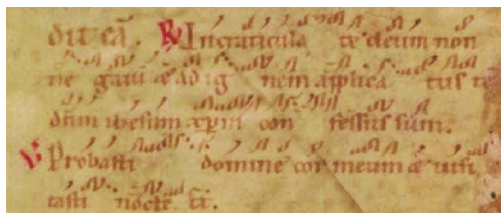 dit eā. R Incraticula te deum non
ne gaui & ad ig nem applica tus te
dn̄m ihesum xp̄m con fessus sum.
V Probasti domine cor meum & uisi
tasti nocte. ti.